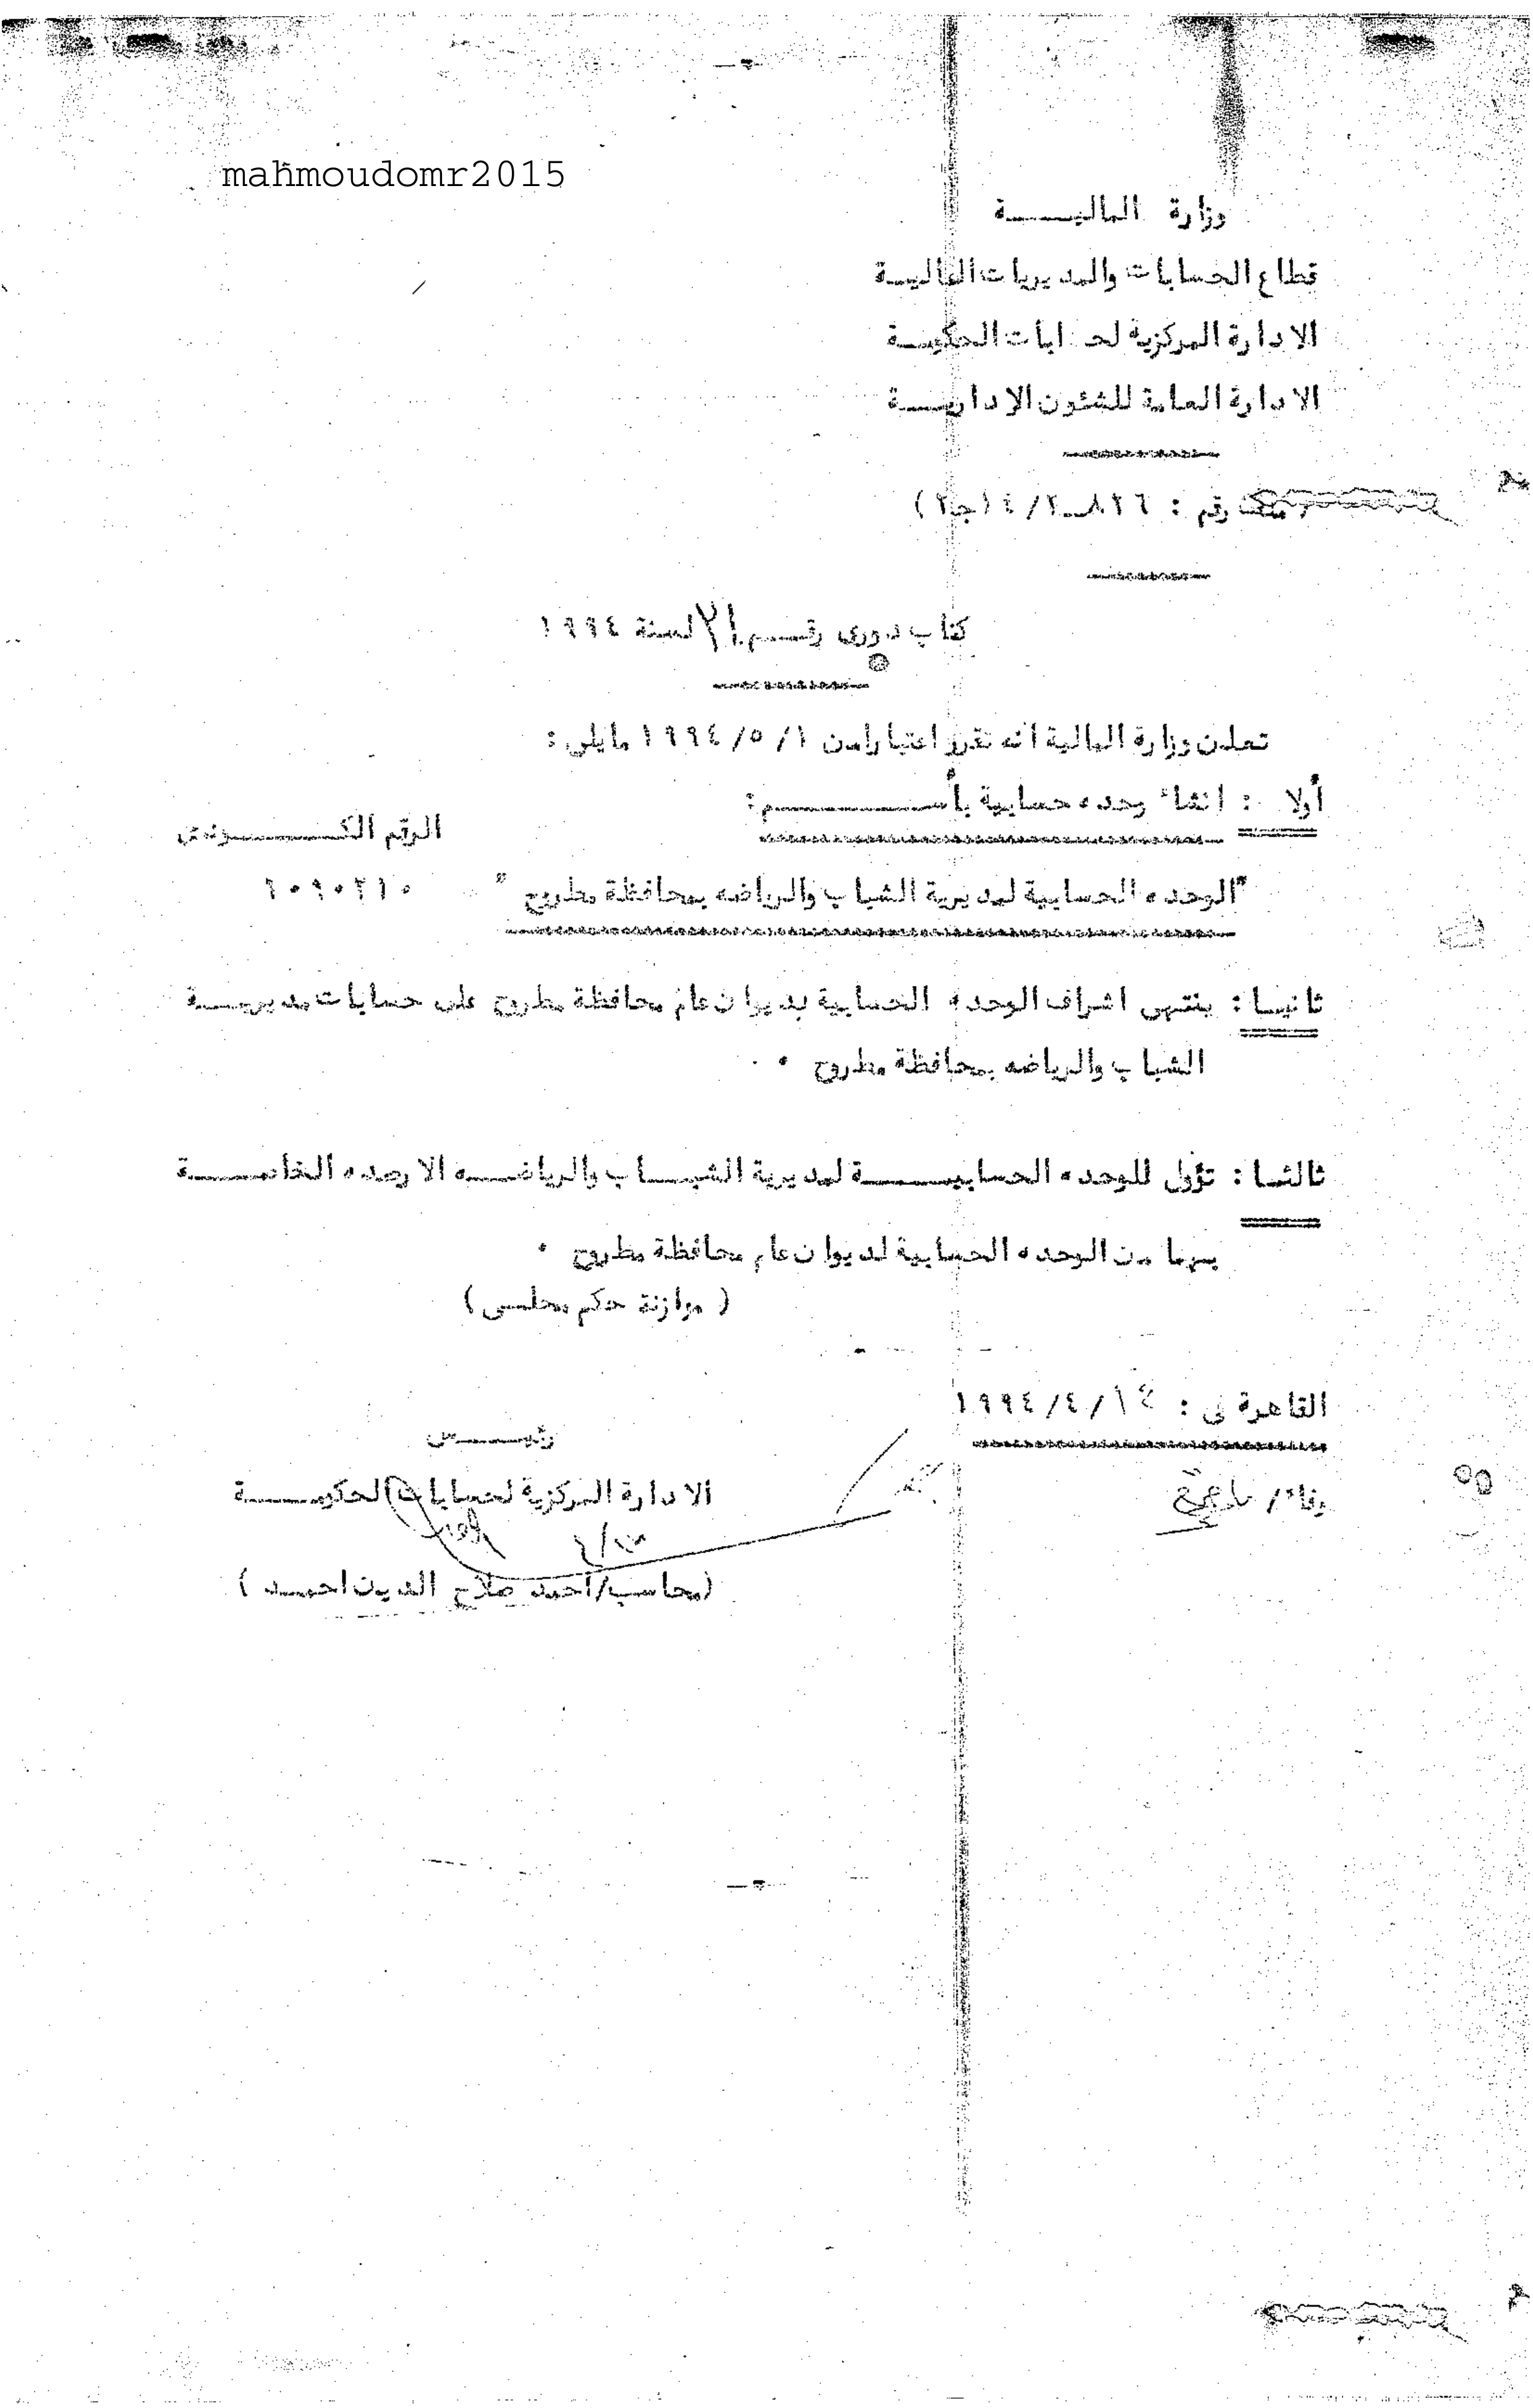 mahmoudomr2015
وزارة الماليـــــة
قطاع الحسابات والمديريات الماليــة
الادارة المركزية لحسابات الحكومــة
الادارة العامة للشئون الاداريـــة
ملف رقم : ٨٢٦ــ٤/٢ (جـ٢)
كتاب دورى رقـــم ٢١ لسنة ١٩٩٤
تعلن وزارة المالية أنه تقرر اعتبارا من ١/٥/١٩٩٤ مايلى :
أولا : انشاء وحده حسابية بأســـــــــــم :
الرقم الكــــــــودى
"الوحده الحسابية لمديرية الشباب والرياضه بمحافظة مطروح "
ثانيـا : ينتهى اشراف الوحده الحسابية بديوان عام محافظة مطروح على حسابات مديريـــة
الشباب والرياضه بمحافظة مطروح ٠
ثالثـا : تؤول للوحده الحسابيـــــة لمديرية الشبـــاب والرياضـــه الارصده الخاصـــــة
بـها من الوحده الحسابية لديوان عام محافظة مطروح ٠
( موازنة حكم محلـى )
القاهرة فى : ١٤/٤/١٩٩٤
رئيـــــس
الادارة المركزية لحسابات الحكومـــــة
وفاء/
(محاسب/أحمد صلاح الدين احمـد )